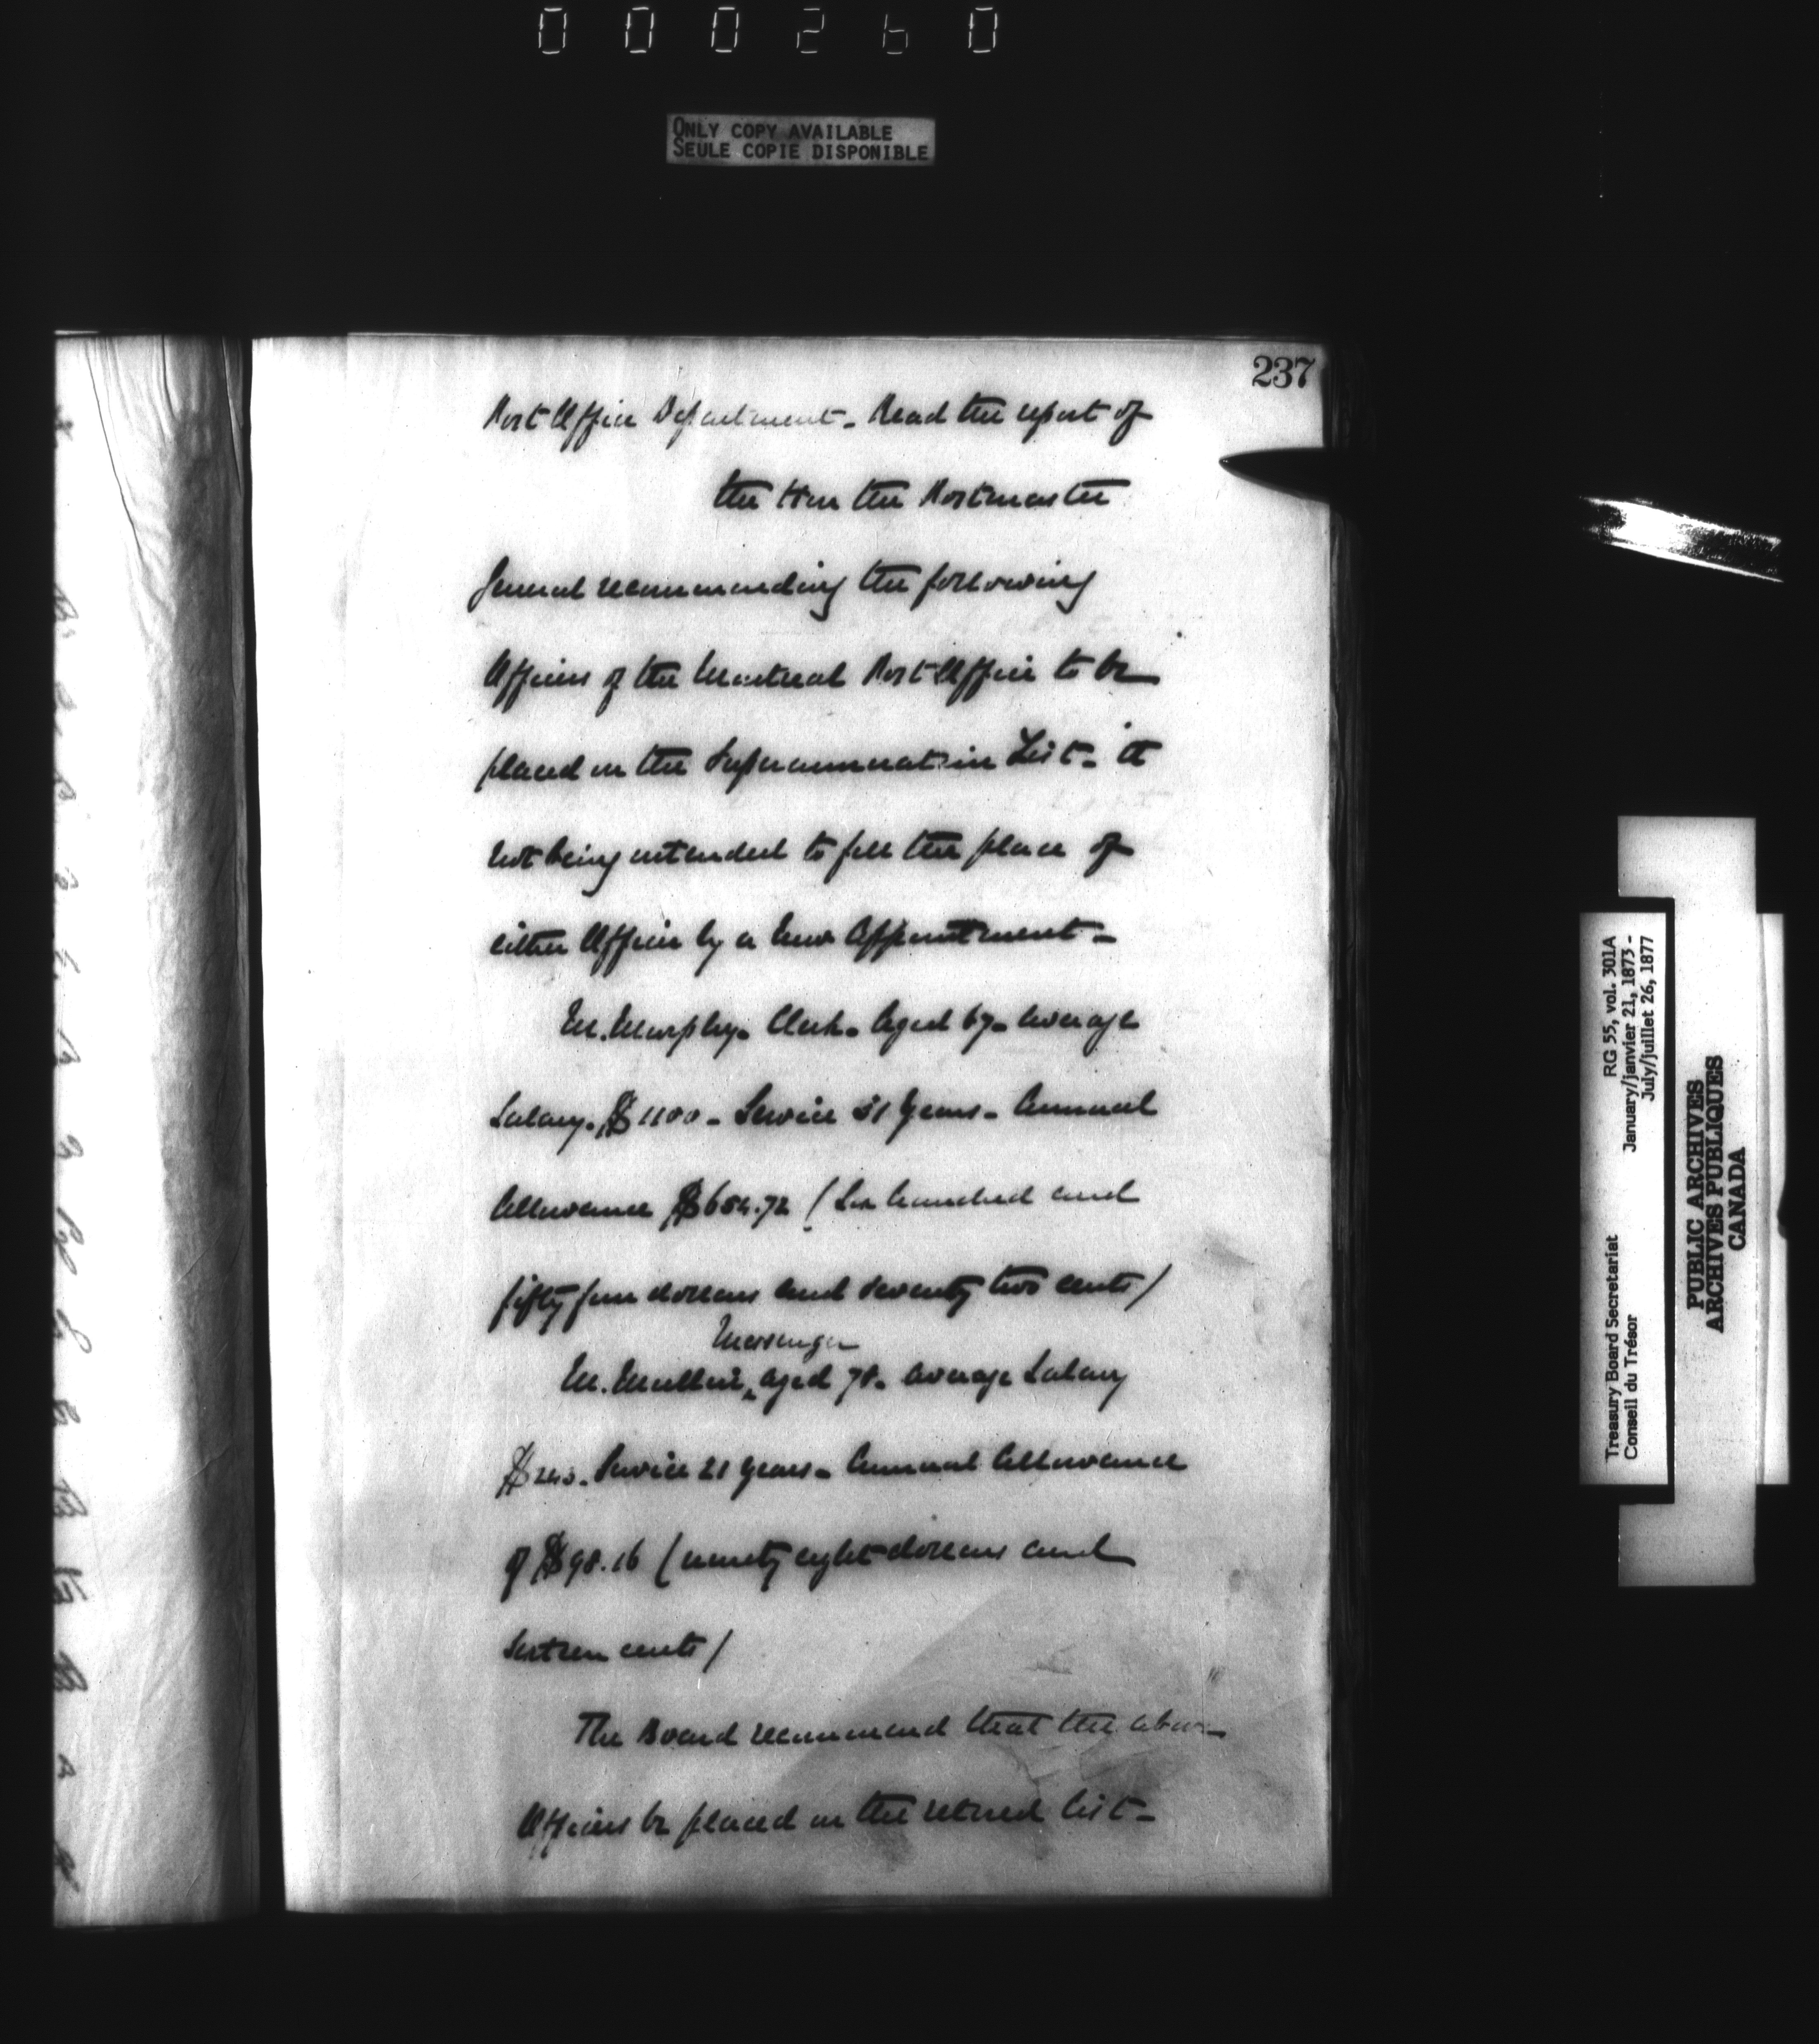 000260
ONLY COPY AVAILABLE
SEULE COPIE DISPONIBLE
237
Post Office Department - Read the report of
the Hon the Postmaster
General recommending the following
Officers of the Montreal Post Office to be
placed on the Superannuation List - it
not being intended to fill the place of
either Officer by a new Appointment -
M. Murphy - Clerk - Aged 67 - average
Salary - $1100 - Service 31 years - Annual
Allowance $654.72 ( Six hundred and
fifty four dollars and seventy two cents /
Messenger
M. Mullin, aged 78 - average Salary
$240 - Service 21 years - Annual Allowance
of $98.16 ( ninety eight dollars and
sixteen cents /
The Board recommend that the above
Officers be placed on the retired list -
Treasury Board Secretariat
Conseil du Trésor
RG 55, vol. 301A
January/janvier 21, 1873 -
July/juillet 26, 1877
PUBLIC ARCHIVES
ARCHIVES PUBLIQUES
CANADA